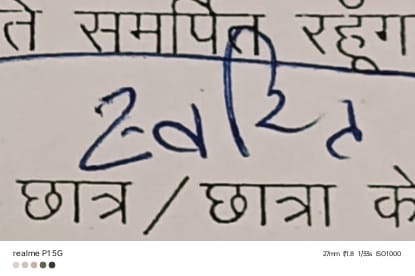 ते समर्पित रहूँग
स्वरित
छात्र / छात्रा के
realme P1 5G
27mm f/1.8 1/33s ISO1000